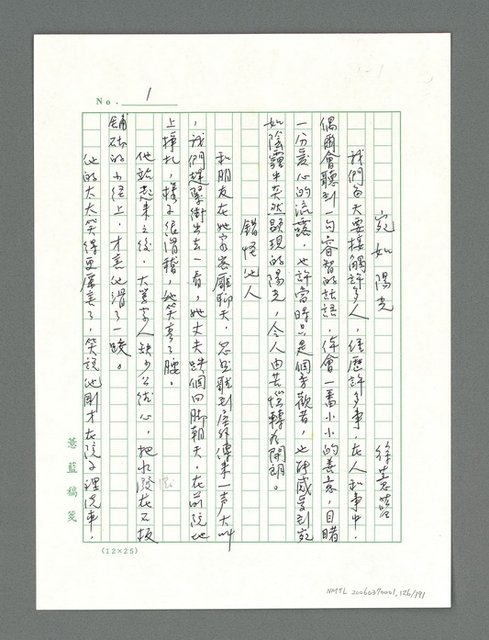 No. 1
宛如陽光
徐薏藍
我們每天要接觸許多人，經歷許多事，在人和事中，
偶爾會聽到一句睿智的話語，体會一番小小的善意，目睹
一分愛心的流露，也許當時只是個旁觀者，也能感受到宛
如陰霾中突然顯現的陽光，令人由苦惱轉為開朗。
錯怪他人
和朋友在她家客廳聊天，忽然聽到屋外傳來一声大叫
，我們趕緊衝出去一看，她丈夫跌個四脚朝天，在前院地
上掙扎，樣子很滑稽，她笑弯了腰。
他站起來之後，大罵家人缺少公德心，把水潑在石板
舖砌的小徑上，才害他滑了一跤。
他的太太笑得更厲害了，笑說他剛才在院子裡洗車，
薏藍稿箋
(12×25)
NMTL 20060370001_126/191